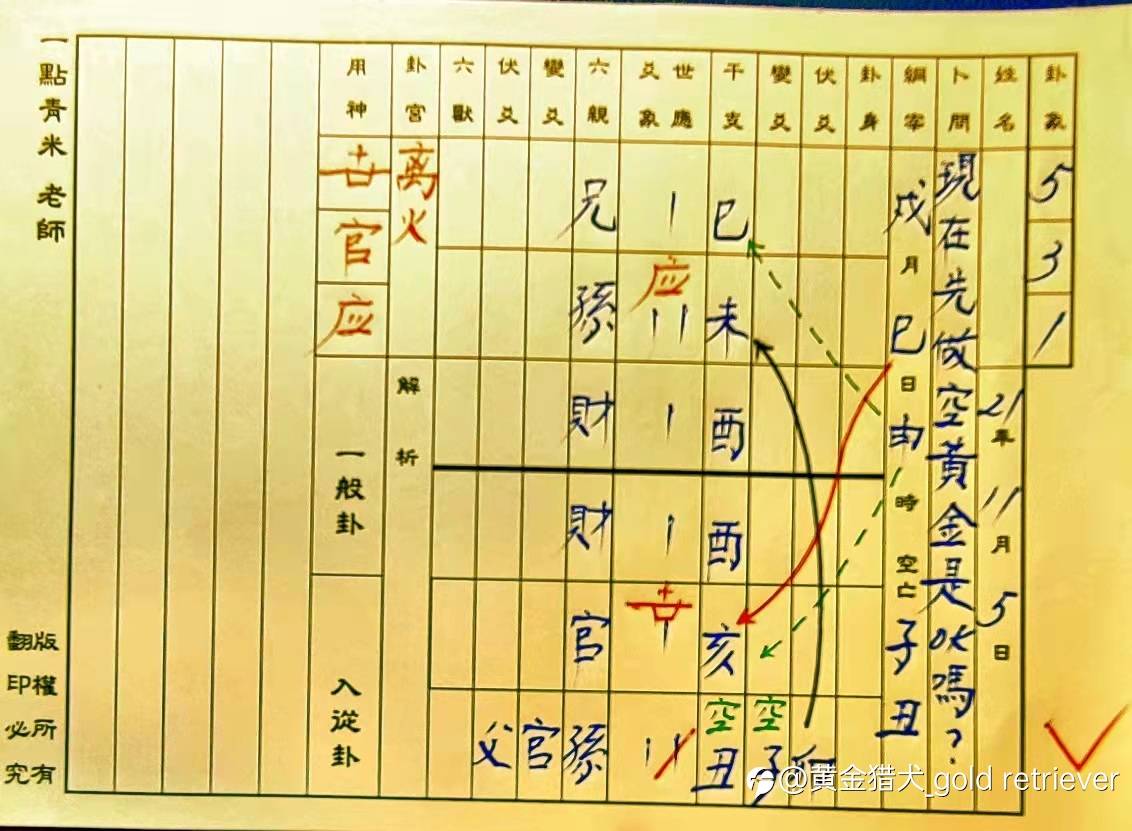 卦象 5 3 1
姓名 21年11月5日
卜問 現在先做空黃金是OK嗎?
綱宰 戌月巳日申時空亡子丑
卦身
伏爻
變爻 空 子
干支 巳 未 酉 酉 亥 空 丑
世應爻象 应 世
六親 兄 孫 財 財 官 孫
變爻 官
伏爻 父
六獸
卦宮 离火
解析
用神 世 官 应
一般卦
入從卦
一點青米 老師
版權所有
翻印必究
@黄金猎犬_gold retriever